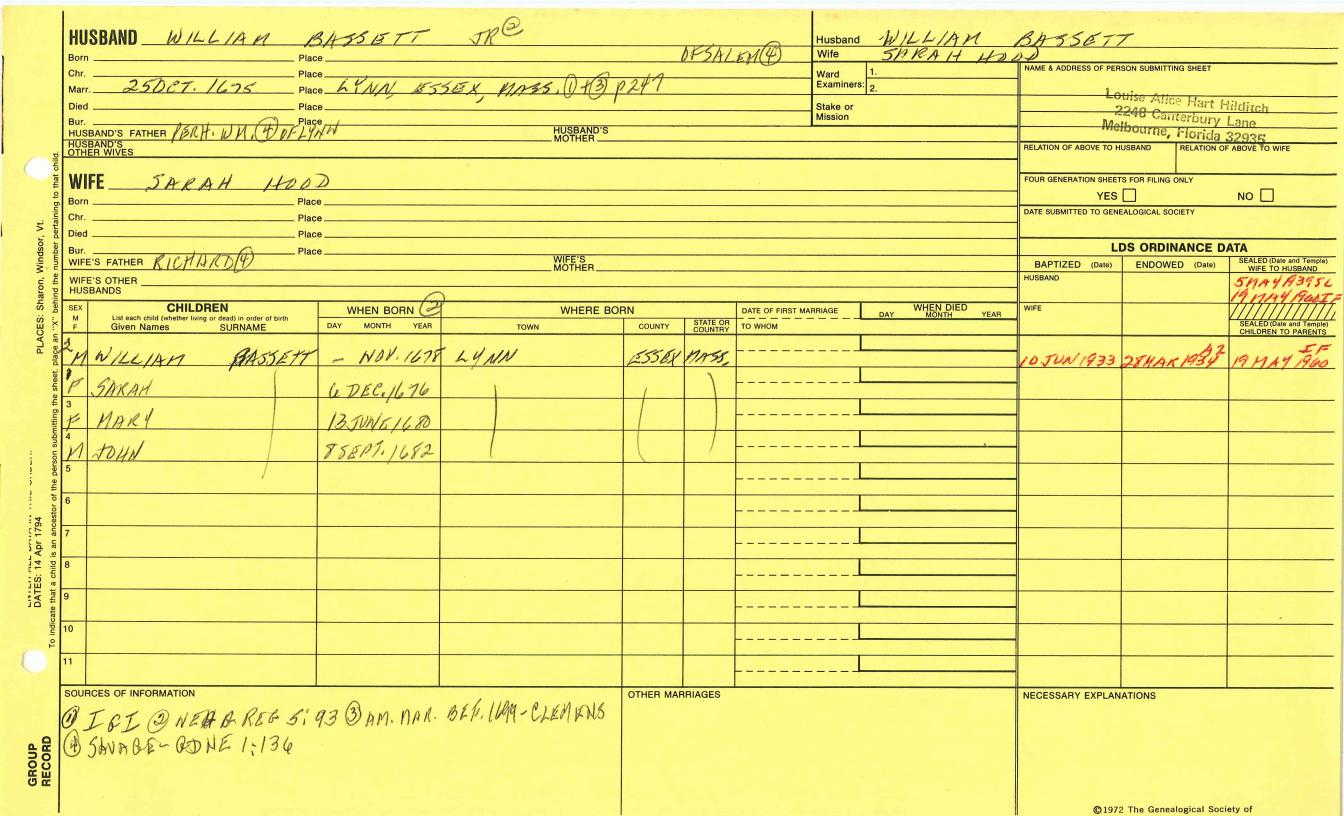 HUSBAND WILLIAM BASSETT JR ②
Born Place OF SALEM ④
Chr. Place
Marr. 25 OCT. 1675 Place LYNN, ESSEX, MASS. ① + ③ p 247
Died Place
Bur. Place
HUSBAND'S FATHER PERH. WM. ④ OF LYNN HUSBAND'S MOTHER
HUSBAND'S OTHER WIVES
WIFE SARAH HOOD
Born Place
Chr. Place
Died Place
Bur. Place
WIFE'S FATHER RICHARD ④ WIFE'S MOTHER
WIFE'S OTHER HUSBANDS
Husband WILLIAM BASSETT
Wife SARAH HOOD
Ward Examiners: 1.
2.
Stake or Mission
NAME & ADDRESS OF PERSON SUBMITTING SHEET
Louise Alice Hart Hilditch
2248 Canterbury Lane
Melbourne, Florida 32935
RELATION OF ABOVE TO HUSBAND RELATION OF ABOVE TO WIFE
FOUR GENERATION SHEETS FOR FILING ONLY
YES NO
DATE SUBMITTED TO GENEALOGICAL SOCIETY
LDS ORDINANCE DATA
BAPTIZED (Date) ENDOWED (Date) SEALED (Date and Temple) WIFE TO HUSBAND
HUSBAND
19 MAY 1960 IF
WIFE
SEALED (Date and Temple) CHILDREN TO PARENTS
SEX M F CHILDREN WHEN BORN ② WHERE BORN DATE OF FIRST MARRIAGE WHEN DIED
List each child (whether living or dead) in order of birth
Given Names SURNAME DAY MONTH YEAR TOWN COUNTY STATE OR COUNTRY TO WHOM DAY MONTH YEAR
2 M WILLIAM BASSETT – NOV. 1678 LYNN ESSEX MASS. 10 JUN 1933 28 MAR 1934 AZ 19 MAY 1960 IF
1 F SARAH 6 DEC. 1676
3 F MARY 13 JUNE 1680
4 M JOHN 8 SEPT. 1682
5
6
7
8
9
10
11
SOURCES OF INFORMATION
① IGI ② NEH&G REG 5:93 ③ AM. MAR. BEF. 1699 - CLEMENS
④ SAVAGE - GDNE 1:136
OTHER MARRIAGES
NECESSARY EXPLANATIONS
©1972 The Genealogical Society of
PLACES: Sharon, Windsor, Vt.
DATES: 14 Apr 1794
To indicate that a child is an ancestor of the person submitting the sheet, place an "X" behind the number pertaining to that child.
GROUP RECORD